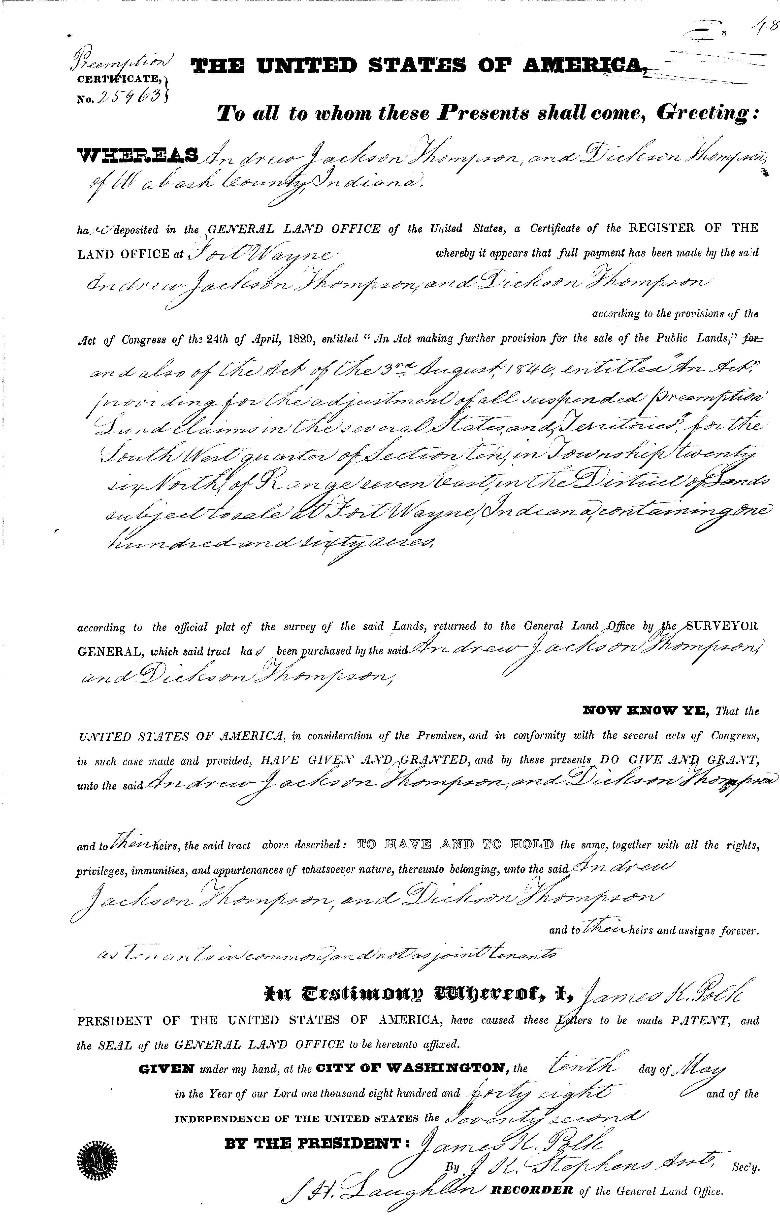 48
Preemption
CERTIFICATE,
No. 25963
THE UNITED STATES OF AMERICA,
To all to whom these Presents shall come, Greeting:
WHEREAS Andrew Jackson Thompson, and Dickson Thompson,
of Wabash County, Indiana.
ha deposited in the GENERAL LAND OFFICE of the United States, a Certificate of the REGISTER OF THE
LAND OFFICE at Fort Wayne whereby it appears that full payment has been made by the said
Andrew Jackson Thompson, and Dickson Thompson
according to the provisions of the
Act of Congress of the 24th of April, 1820, entitled "An Act making further provision for the sale of the Public Lands," for
and also of the Act of the 3rd August, 1846, entitled "An Act,
providing for the adjustment of all suspended preemption
Land claims in the several States and Territories", for the
South West quarter of Section ten, in Township twenty
six North, of Range seven East, in the District of Lands
subject to sale at Fort Wayne, Indiana, containing one
hundred and sixty acres,
according to the official plat of the survey of the said Lands, returned to the General Land Office by the SURVEYOR
GENERAL, which said tract has been purchased by the said Andrew Jackson Thompson,
and Dickson Thompson,
NOW KNOW YE, That the
UNITED STATES OF AMERICA, in consideration of the Premises, and in conformity with the several acts of Congress,
in such case made and provided, HAVE GIVEN AND GRANTED, and by these presents DO GIVE AND GRANT,
unto the said Andrew Jackson Thompson, and Dickson Thompson
and to their heirs, the said tract above described: TO HAVE AND TO HOLD the same, together with all the rights,
privileges, immunities, and appurtenances of whatsoever nature, thereunto belonging, unto the said Andrew
Jackson Thompson, and Dickson Thompson
and to their heirs and assigns forever.
as tenants in common, and not as joint tenants
In Testimony Whereof, I, James K. Polk
PRESIDENT OF THE UNITED STATES OF AMERICA, have caused these Letters to be made PATENT, and
the SEAL of the GENERAL LAND OFFICE to be hereunto affixed.
GIVEN under my hand, at the CITY OF WASHINGTON, the tenth day of May
in the Year of our Lord one thousand eight hundred and forty eight and of the
INDEPENDENCE OF THE UNITED STATES the Seventy second
BY THE PRESIDENT: James K. Polk
By J. K. Stephens Asst. Sec'y.
S H. Laughlin RECORDER of the General Land Office.